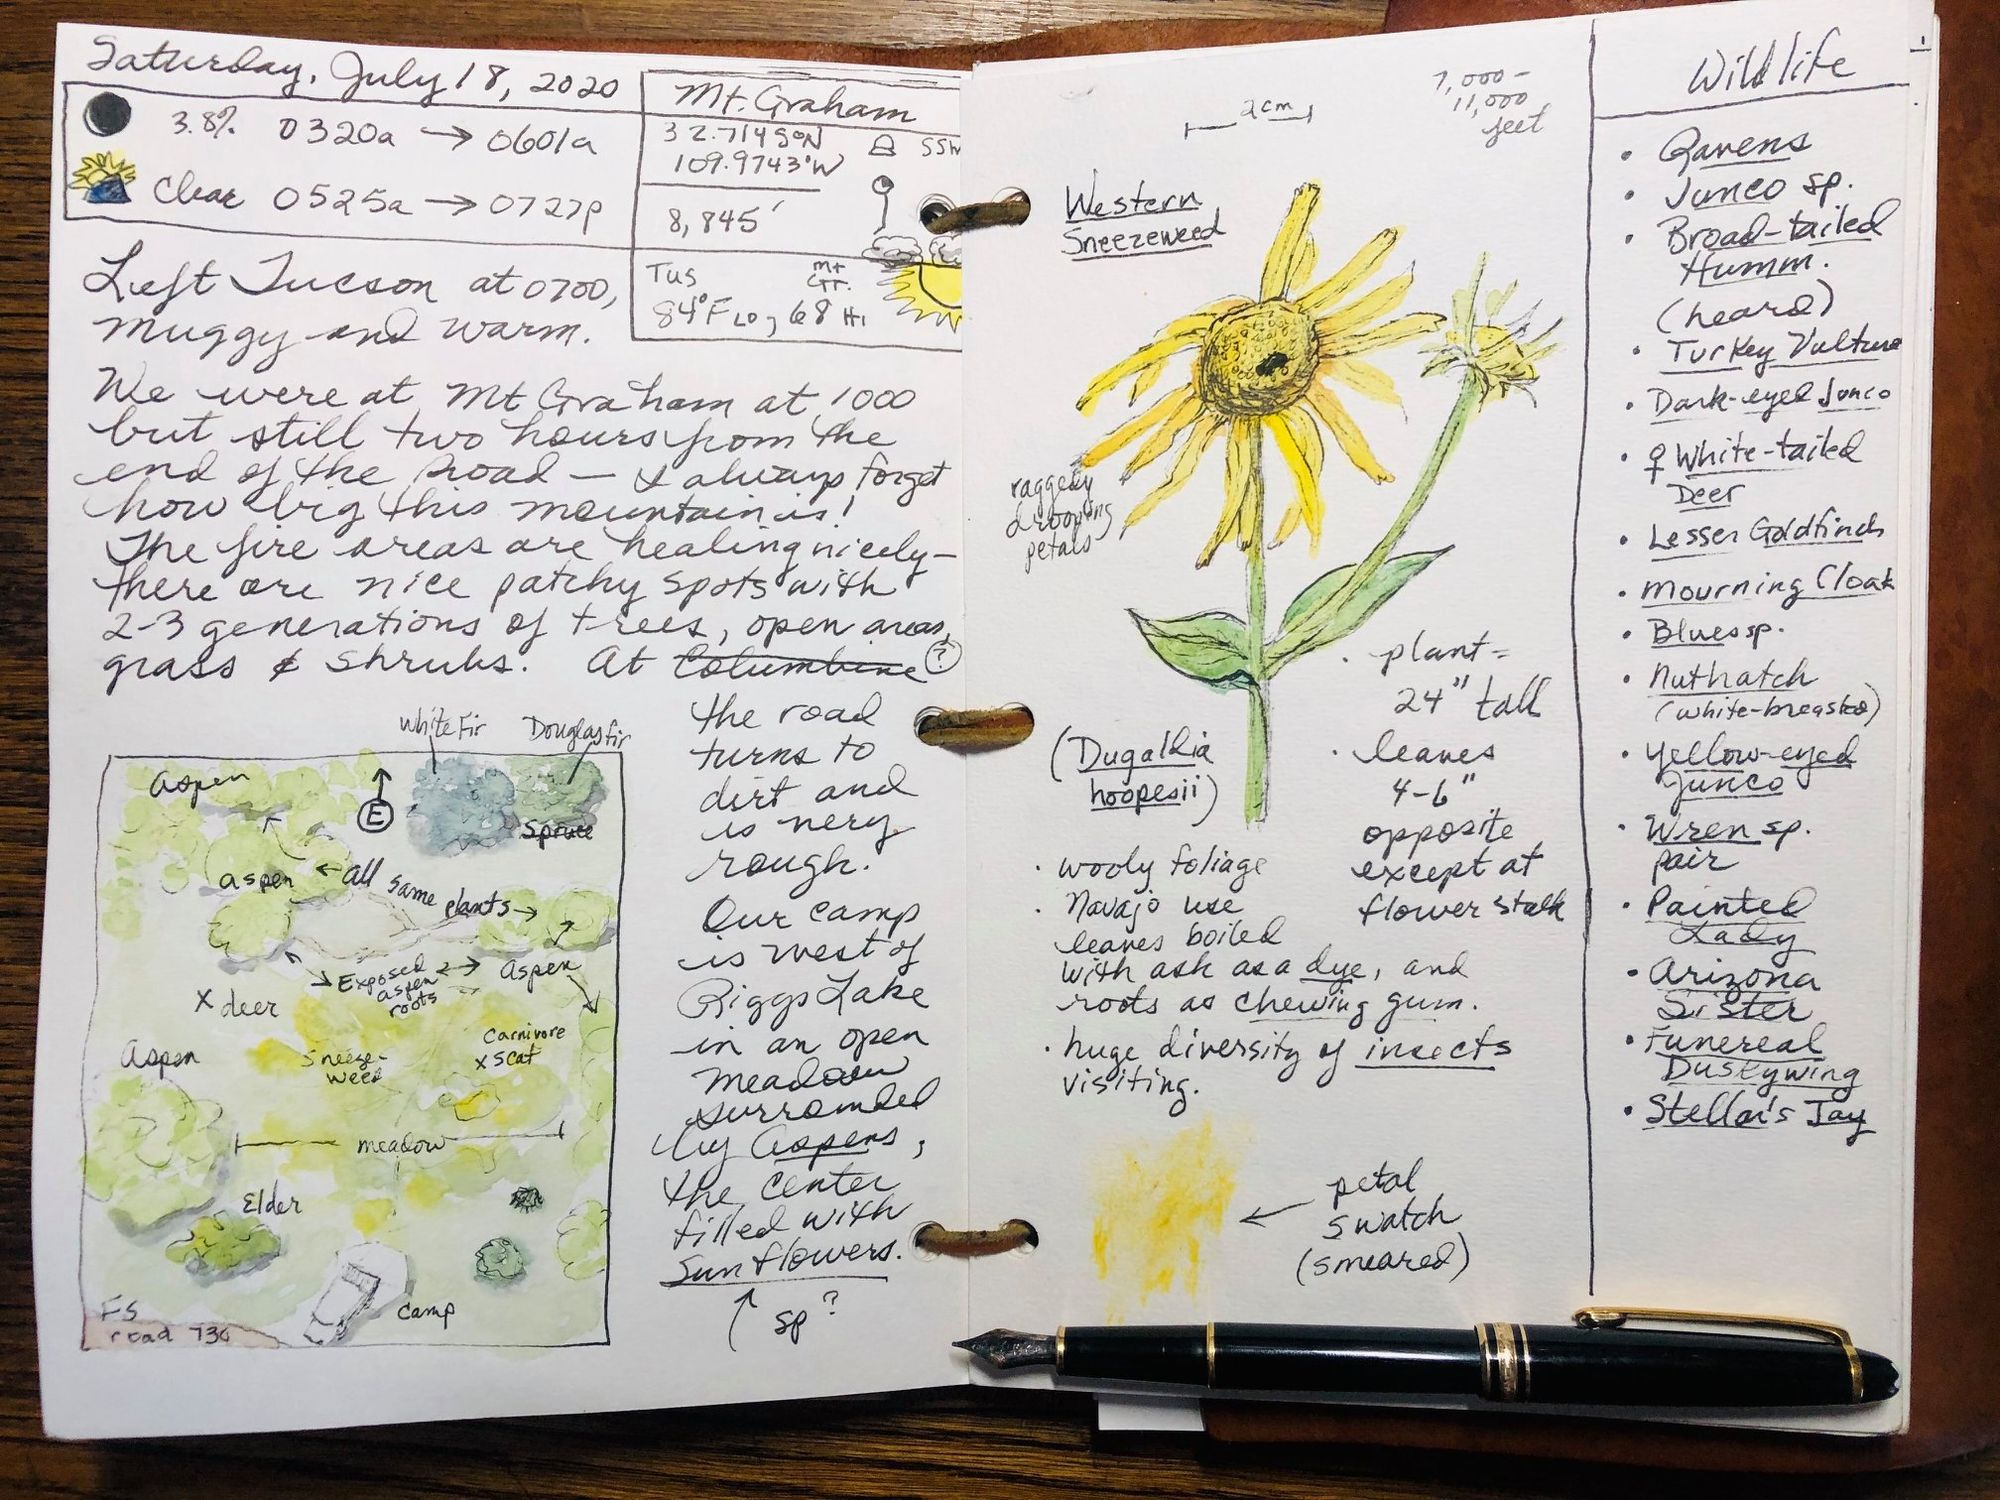 Saturday, July 18, 2020
3.8% 0320a → 0601a
Clear 0525a → 0727p
Mt. Graham
32.7145°N
109.9743°W
8,845'
Tus Mt Gr.
84°F Lo, 68 Hi
Left Tucson at 0700,
muggy and warm.
We were at Mt Graham at 1000
but still two hours from the
end of the Road — I always forget
how big this mountain is!
The fire areas are healing nicely —
there are nice patchy spots with
2-3 generations of trees, open areas,
grass & shrubs. At Columbine ?
the road
turns to
dirt and
is very
rough.
Our camp
is west of
Riggs Lake
in an open
meadow
surrounded
by Aspens,
the center
filled with
Sunflowers.
sp?
White Fir
Douglas fir
Aspen
E
Spruce
aspen ← all same plants →
Exposed
aspen
roots
Aspen
x deer
Aspen
Sneeze-
weed
Carnivore
x scat
meadow
Elder
camp
FS
road 730
2cm
7,000-
11,000
feet
Western
Sneezeweed
raggedy
drooping
petals
(Dugaldia
hoopesii)
· plant =
24" tall
· leaves
4-6"
opposite
except at
flower stalk
· wooly foliage
· Navajo use
leaves boiled
with ash as a dye, and
roots as chewing gum.
· huge diversity of insects
visiting.
petal
swatch
(smeared)
Wildlife
• Ravens
• Junco sp.
• Broad-tailed
Humm.
(heard)
• Turkey Vulture
• Dark-eyed Junco
• ♀ White-tailed
Deer
• Lesser Goldfinch
• Mourning Cloak
• Blues sp.
• Nuthatch
(white-breasted)
• Yellow-eyed
Junco
• Wren sp.
pair
• Painted
Lady
• Arizona
Sister
• Funereal
Duskywing
• Stellar's Jay